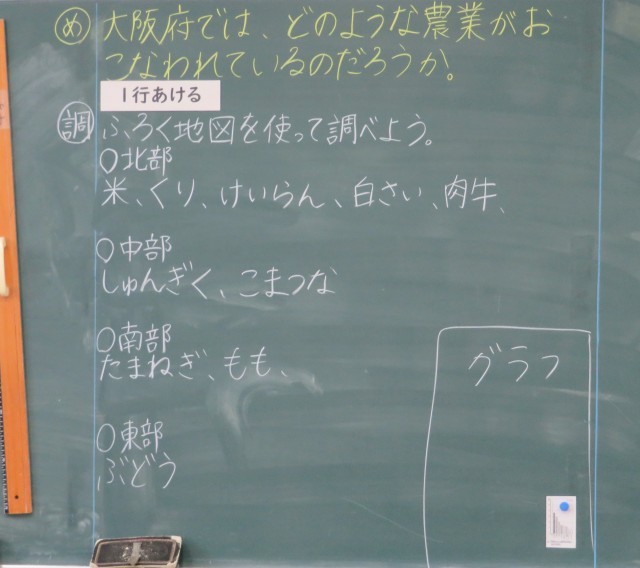 め 大阪府では、どのような農業がお
こなわれているのだろうか。
1行あける
調 ふろく地図を使って調べよう。
○北部
米、くり、けいらん、白さい、肉牛、
○中部
しゅんぎく、こまつな
○南部
たまねぎ、もも、
○東部
ぶどう
グラフ